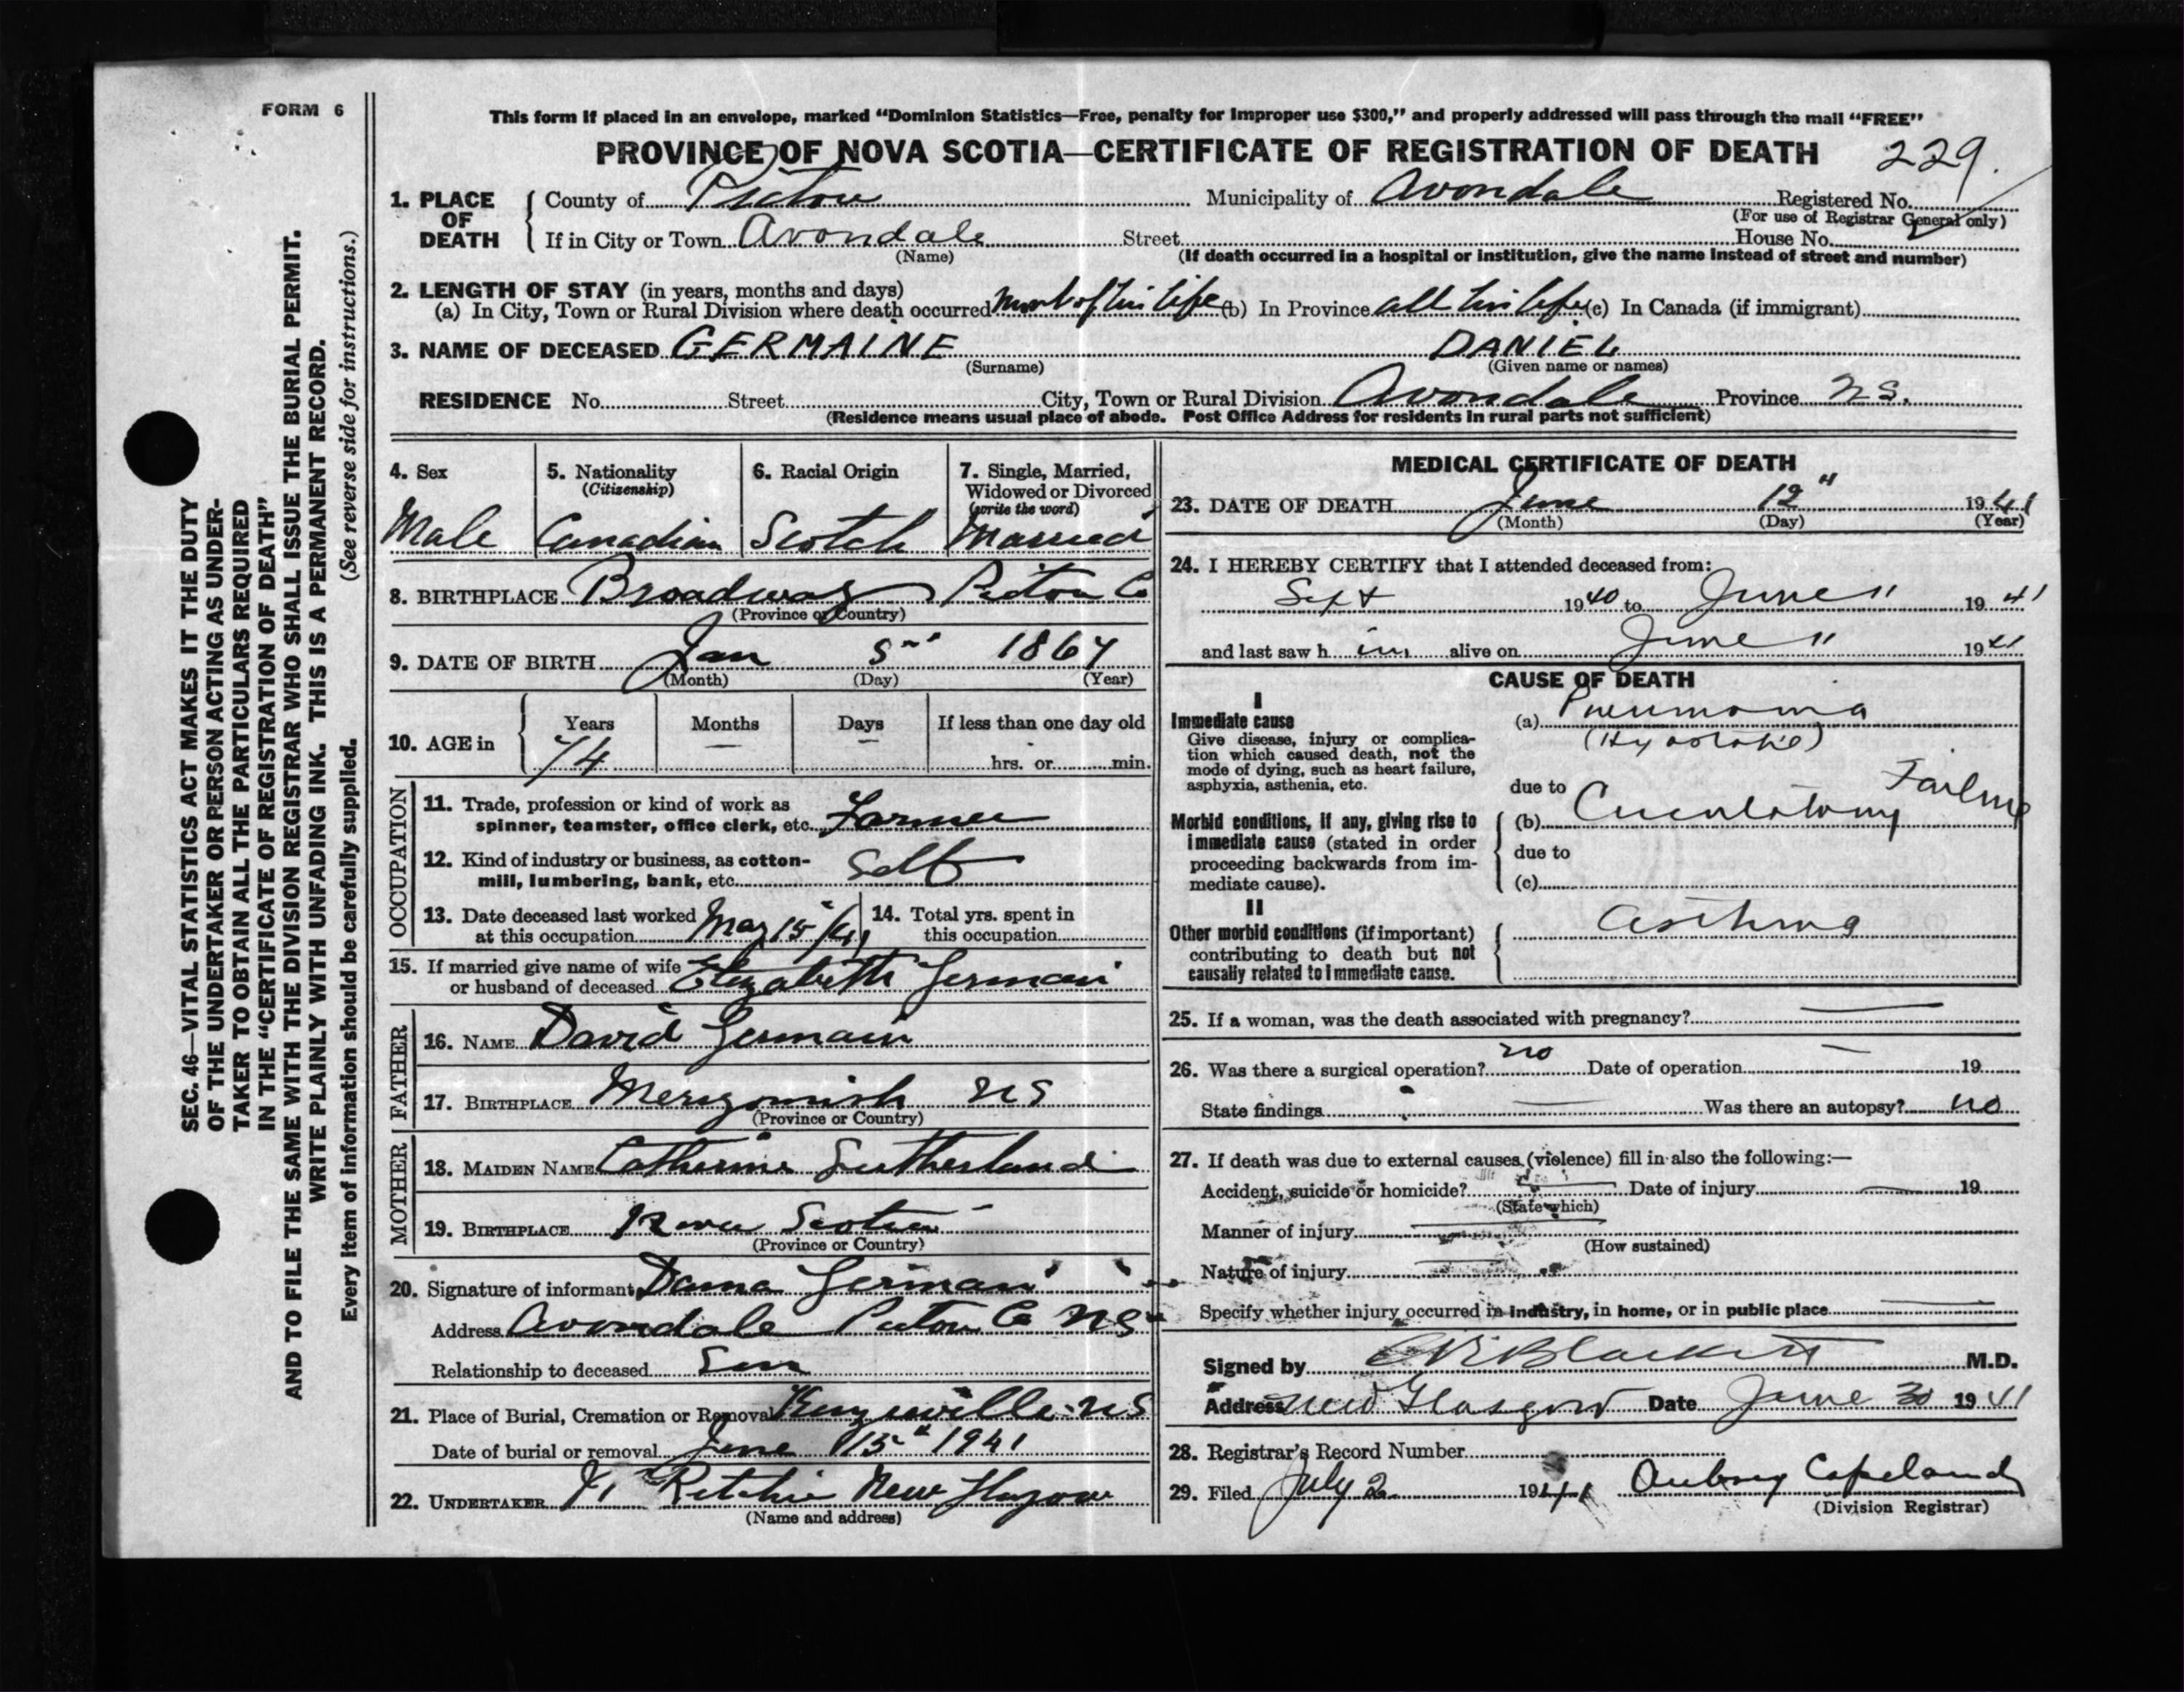 FORM 6
This form if placed in an envelope, marked “Dominion Statistics—Free, penalty for improper use $300,” and properly addressed will pass through the mail “FREE”
PROVINCE OF NOVA SCOTIA—CERTIFICATE OF REGISTRATION OF DEATH 229.
1. PLACE OF DEATH
County of Pictou Municipality of Avondale Registered No.
(For use of Registrar General only)
If in City or Town Avondale Street House No.
(Name) (If death occurred in a hospital or institution, give the name instead of street and number)
2. LENGTH OF STAY (in years, months and days)
(a) In City, Town or Rural Division where death occurred Most of his life (b) In Province all his life (c) In Canada (if immigrant)
3. NAME OF DECEASED GERMAINE DANIEL
(Surname) (Given name or names)
RESIDENCE No. Street City, Town or Rural Division Avondale Province NS.
(Residence means usual place of abode. Post Office Address for residents in rural parts not sufficient)
4. Sex
Male
5. Nationality
(Citizenship)
Canadian
6. Racial Origin
Scotch
7. Single, Married,
Widowed or Divorced
(write the word)
Married
8. BIRTHPLACE Broadway Pictou Co
(Province or Country)
9. DATE OF BIRTH Jan 5 1867
(Month) (Day) (Year)
10. AGE in
Years Months Days If less than one day old
74 — — hrs. or min.
OCCUPATION
11. Trade, profession or kind of work as
spinner, teamster, office clerk, etc. Farmer
12. Kind of industry or business, as cotton-
mill, lumbering, bank, etc. Self
13. Date deceased last worked
at this occupation May 15/41
14. Total yrs. spent in
this occupation
15. If married give name of wife
or husband of deceased Elizabeth Germain
FATHER
16. NAME David Germain
17. BIRTHPLACE Merigomish NS
(Province or Country)
MOTHER
18. MAIDEN NAME Catherine Sutherland
19. BIRTHPLACE Nova Scotia
(Province or Country)
20. Signature of informant Germain
Address Avondale Pictou Co NS
Relationship to deceased Son
21. Place of Burial, Cremation or Removal NS
Date of burial or removal June 15" 1941
22. UNDERTAKER Ritchie New Glasgow
(Name and address)
MEDICAL CERTIFICATE OF DEATH
23. DATE OF DEATH June 12" 1941
(Month) (Day) (Year)
24. I HEREBY CERTIFY that I attended deceased from:
Sept 1940 to June 11 1941
and last saw him alive on June 11 1941
CAUSE OF DEATH
I
Immediate cause
Give disease, injury or complica-
tion which caused death, not the
mode of dying, such as heart failure,
asphyxia, asthenia, etc.
(a) Pneumonia
(Hypostatic)
due to
Morbid conditions, if any, giving rise to
immediate cause (stated in order
proceeding backwards from im-
mediate cause).
(b) Circulatory Failure
due to
(c)
II
Other morbid conditions (if important)
contributing to death but not
causally related to immediate cause.
Asthma
25. If a woman, was the death associated with pregnancy? —
26. Was there a surgical operation? no Date of operation — 19
State findings — Was there an autopsy? no
27. If death was due to external causes (violence) fill in also the following:—
Accident, suicide or homicide? — Date of injury — 19
(State which)
Manner of injury —
(How sustained)
Nature of injury —
Specify whether injury occurred in industry, in home, or in public place —
Signed by Blackett M.D.
Address New Glasgow Date June 30 1941
28. Registrar's Record Number
29. Filed July 2 1941 Aubrey Copeland
(Division Registrar)
SEC. 46—VITAL STATISTICS ACT MAKES IT THE DUTY
OF THE UNDERTAKER OR PERSON ACTING AS UNDER-
TAKER TO OBTAIN ALL THE PARTICULARS REQUIRED
IN THE “CERTIFICATE OF REGISTRATION OF DEATH”
AND TO FILE THE SAME WITH THE DIVISION REGISTRAR WHO SHALL ISSUE THE BURIAL PERMIT.
WRITE PLAINLY WITH UNFADING INK. THIS IS A PERMANENT RECORD.
Every item of information should be carefully supplied. (See reverse side for instructions.)